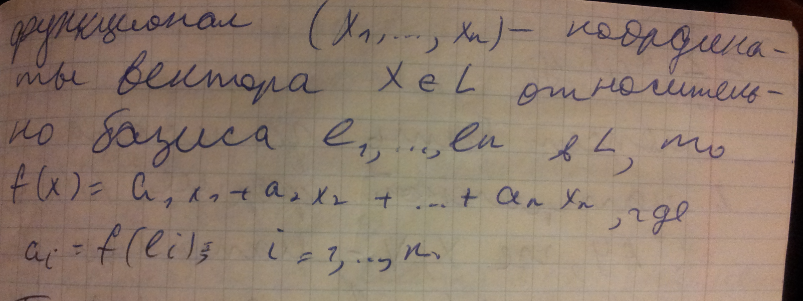 функционал (x₁,...,xₙ) – координа-
ты вектора x ∈ L относитель-
но базиса e₁,...,eₙ в L, то
f(x) = a₁x₁ + a₂x₂ + ... + aₙxₙ, где
aᵢ = f(eᵢ); i = 1,...,n.